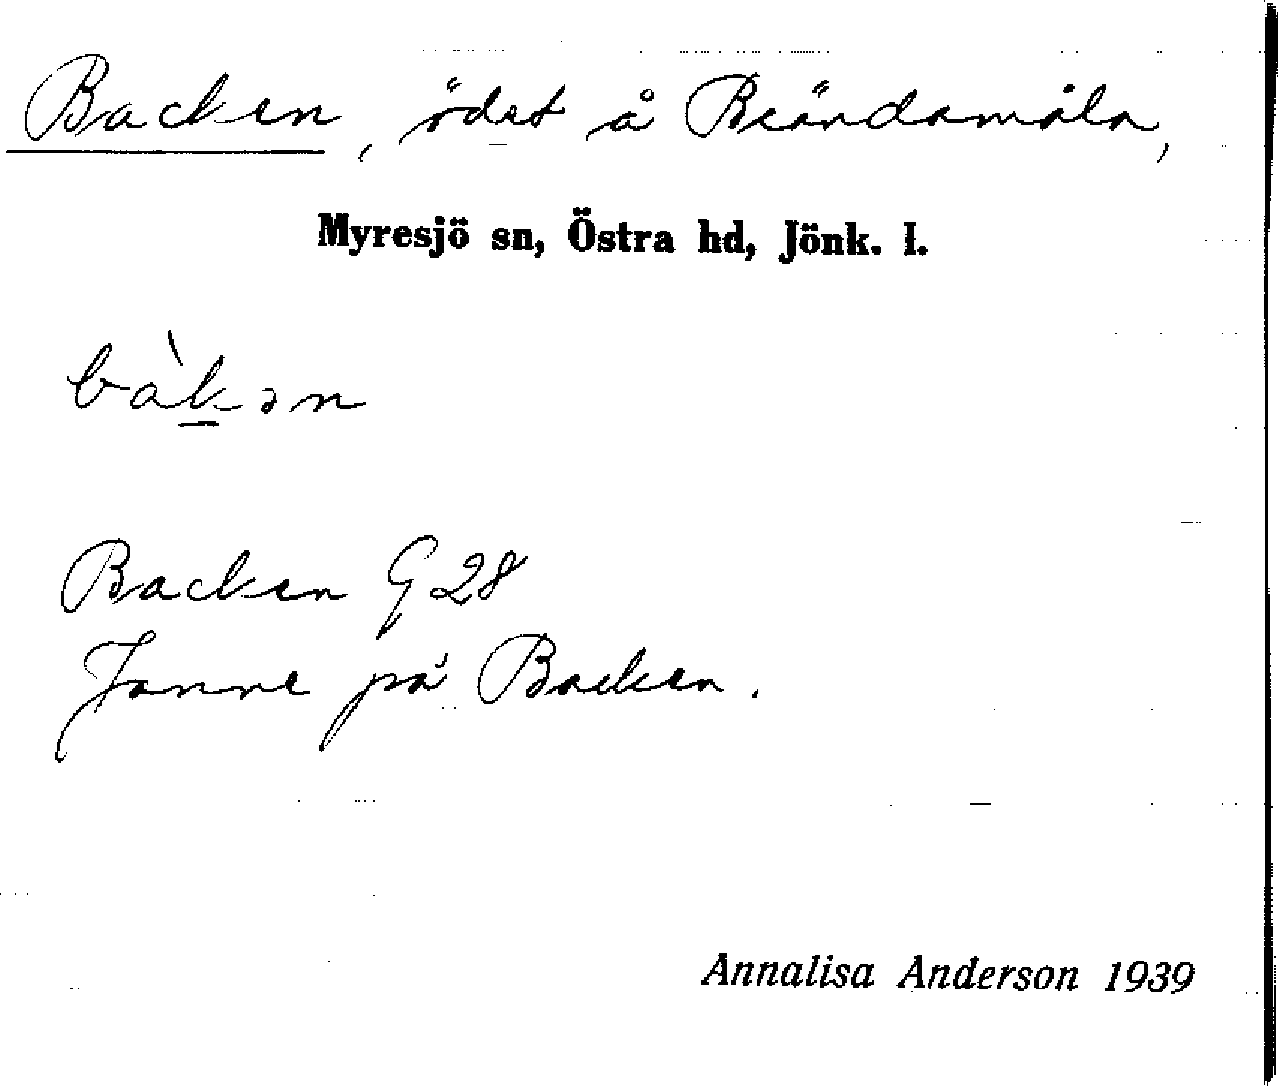 Backen, ödst å Brändamåla,
Myresjö sn, Östra hd, Jönk. l.
bàkən
Backen G 28
Janne på Backen.
Annalisa Anderson 1939